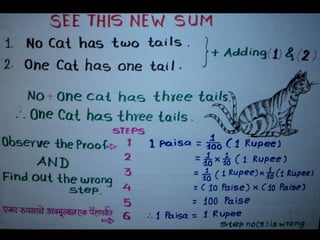 SEE THIS NEW SUM
1. No Cat has two tails.
2. One Cat has one tail.
+ Adding (1) & (2)
No + One cat has three tails
∴ One Cat has three tails.
STEPS
Observe the Proof → 1 1 Paisa = 1/100 (1 Rupee)
AND 2 = 1/10 × 1/10 (1 Rupee)
Find out the wrong step. 3 = 1/10 (1 Rupee) × 1/10 (1 Rupee)
4 = (10 Paise) × (10 Paise)
5 = 100 Paise
6 ∴ 1 Paisa = 1 Rupee
एका रुपयाचे अवमूल्यन एक पैशापर्यंत
Step no(3) is wrong